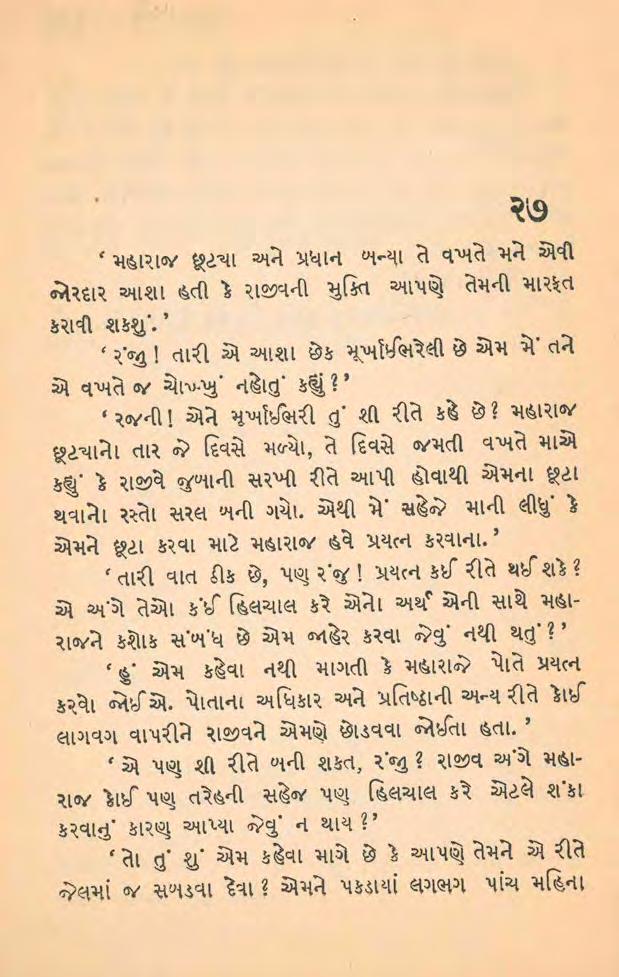 ૨૭
‘ મહારાજ છૂટ્યા અને પ્રધાન બન્યા તે વખતે મને એવી
જોરદાર આશા હતી કે રાજીવની મુક્તિ આપણે તેમની મારફત
કરાવી શકશું.’
‘ રંજુ ! તારી એ આશા છેક મૂર્ખાઈભરેલી છે એમ મેં તને
એ વખતે જ ચોખ્ખું નહોતું કહ્યું ?’
‘ રજની! એને મૂર્ખાઈભિરી તું શી રીતે કહે છે? મહારાજ
છૂટ્યાનો તાર જે દિવસે મળ્યો, તે દિવસે જમતી વખતે માએ
કહ્યું કે રાજીવે જુબાની સરખી રીતે આપી હોવાથી એમના છૂટા
થવાનો રસ્તો સરલ બની ગયો. એથી મેં સહેજે માની લીધું કે
એમને છૂટા કરવા માટે મહારાજ હવે પ્રયત્ન કરવાના.’
‘ તારી વાત ઠીક છે, પણ રંજુ ! પ્રયત્ન કઈ રીતે થઈ શકે ?
એ અંગે તેઓ કંઈ હિલચાલ કરે એનો અર્થ એની સાથે મહા-
રાજને કશોક સંબંધ છે એમ જાહેર કરવા જેવું નથી થતું ?’
‘ હું એમ કહેવા નથી માગતી કે મહારાજે પોતે પ્રયત્ન
કરવો જોઈએ. પોતાના અધિકાર અને પ્રતિષ્ઠાની અન્ય રીતે કોઈ
લાગવગ વાપરીને રાજીવને એમણે છોડવવા જોઈતા હતા. ’
‘ એ પણ શી રીતે બની શકત, રંજુ ? રાજીવ અંગે મહા-
રાજ કોઈ પણ તરેહની સહેજ પણ હિલચાલ કરે એટલે શંકા
કરવાનું કારણ આપ્યા જેવું ન થાય ?’
‘ તો તું શું એમ કહેવા માગે છે કે આપણે તેમને એ રીતે
જેલમાં જ સબડવા દેવા ? એમને પકડાયાં લગભગ પાંચ મહિના